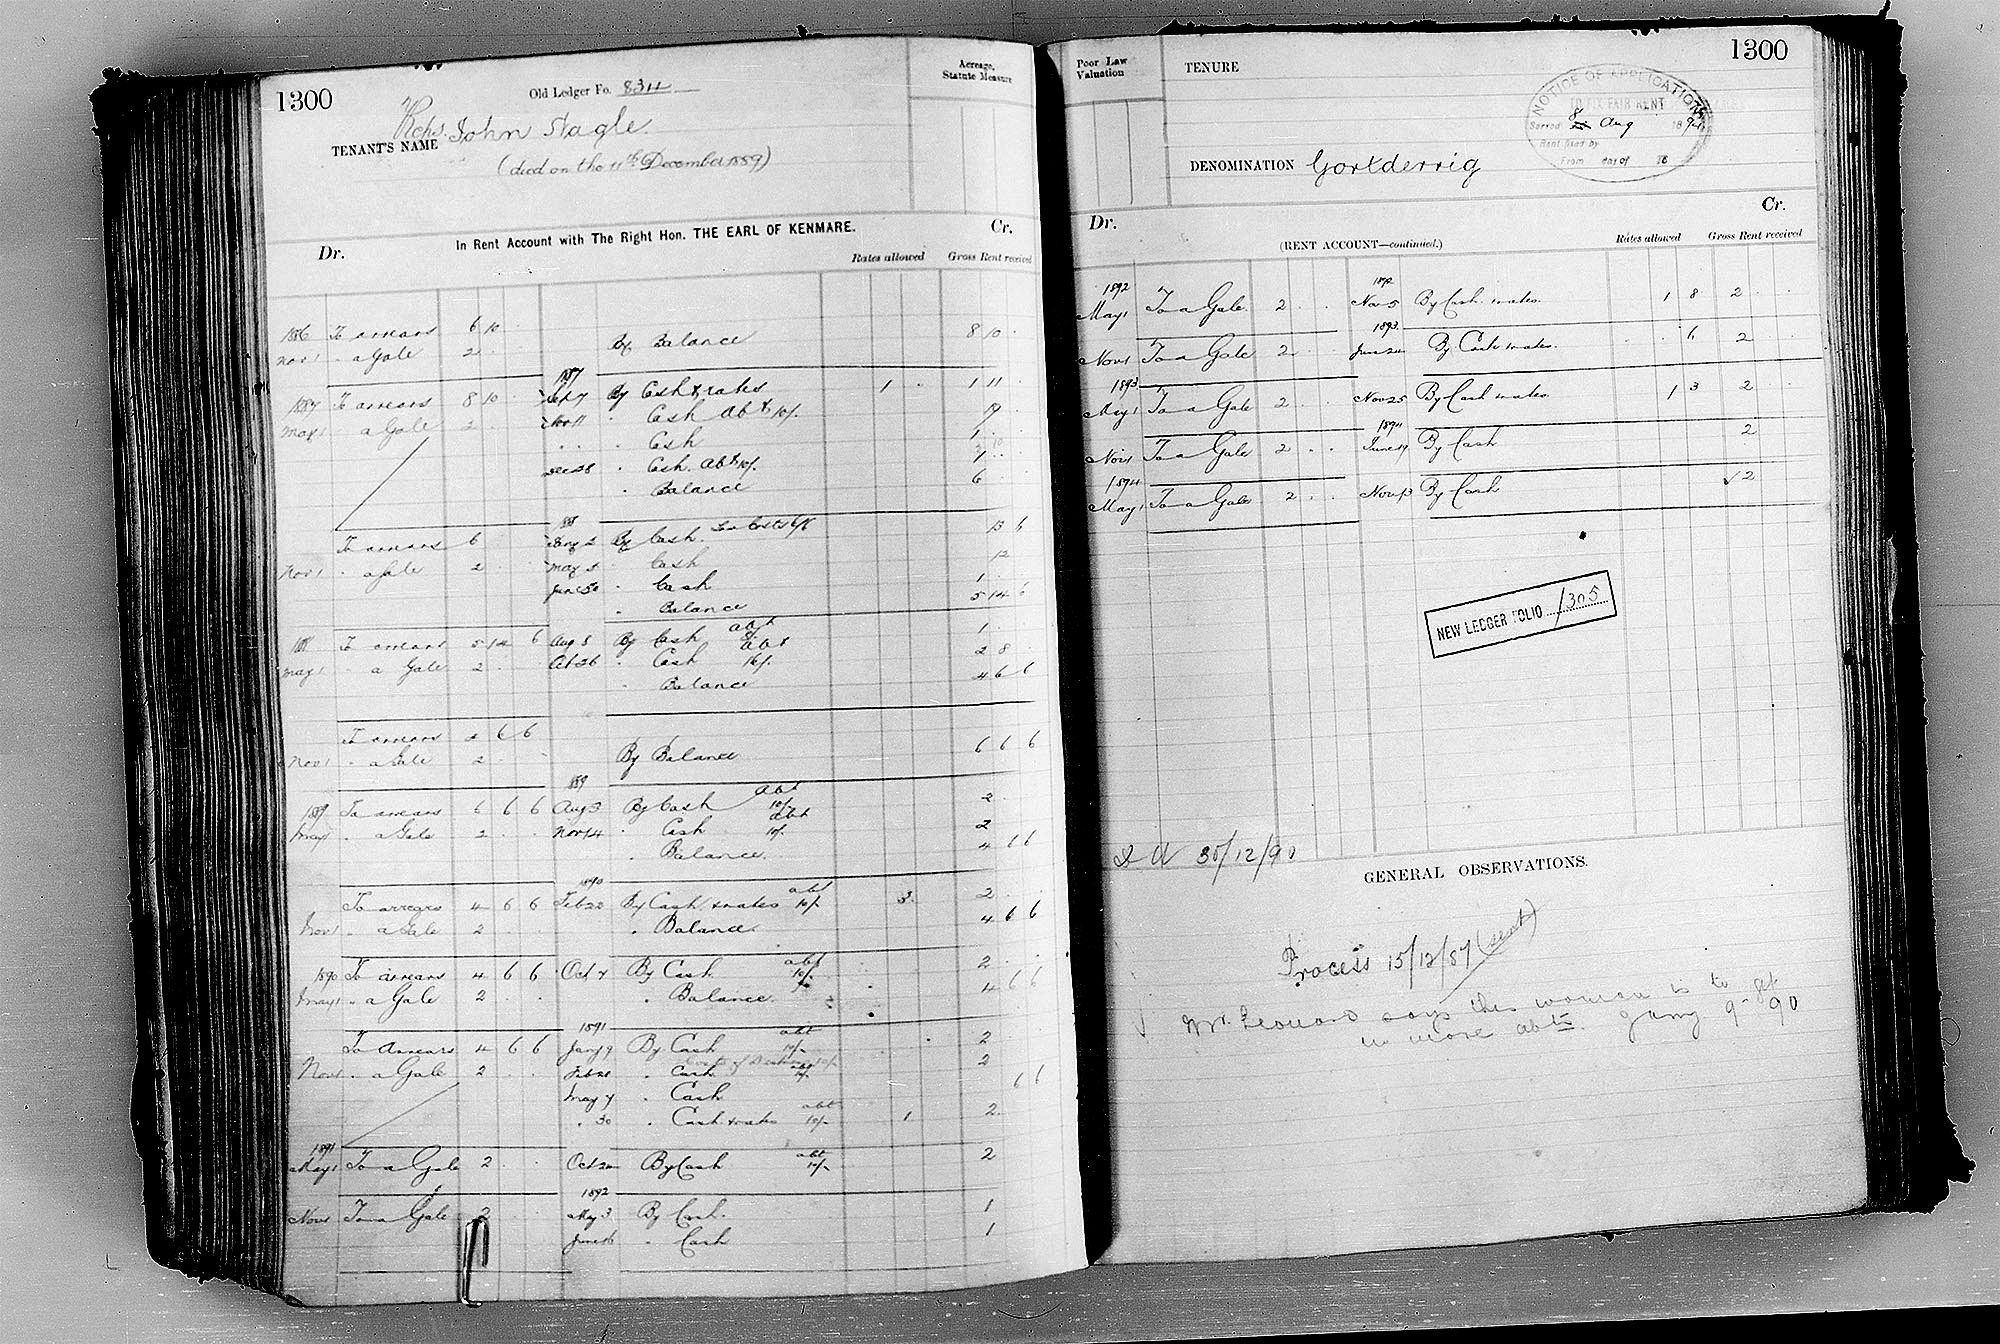 1300
Old Ledger Fo. 834
Acreage, Statute Measure
Reps. John Nagle
TENANT'S NAME
(died on the 11th December 1889)
In Rent Account with The Right Hon. THE EARL OF KENMARE.
Dr. Cr.
Rates allowed Gross Rent received
1886 To arrears 6 10 .
Nov 1 " a Gale 2 . . By Balance 8 10 .
1887 To arrears 8 10 . 1887 Sept 7 By Cash & rates 1 . 1 11 .
May 1 " a Gale 2 . . Nov 11 " Cash Abt 10/.
" Cash 1 . .
Dec 28 " Cash. abt 10/. 1 . .
" Balance 6
To arrears 6 1888 By Cash. Law Costs 6/8
Nov 1 " a Gale 2 May 5 Cash 12
June 30 " Cash 1 .
" Balance 5 14 6
1888 To arrears 5 14 6 Aug 8 By Cash abt 1 .
May 1 " a Gale 2 . . Oct 26 " Cash abt 2 8
" Balance 4 6 6
To arrears 4 6 6
Nov 1 " a Gale 2 . . By Balance 6 6 6
1889
1889 To arrears 6 6 6 Aug 3 By Cash abt 10/. 2 .
May 1 " a Gale 2 . . Nov 14 " Cash abt 10/. 2
" Balance 4 6 6
1890
To arrears 4 6 6 Feb 22 By Cash & rates abt 10/. 3 . 2 . .
Nov 1 " a Gale 2 . . " Balance 4 6 6
1890 To arrears 4 6 6 Oct 7 By Cash abt 10/. 2 . .
May 1 " a Gale 2 . . " Balance 4 6 6
1891
To Arrears 4 6 6 Jany 9 By Cash abt 10/. 2
Nov 1 " a Gale 2 . . Feb 28 " Cash abt 10/. 2
May 7 " Cash 6 6
" 30 " Cash & rates abt 10/. 1 2
1891
May 1 To a Gale 2 . . Oct 20 By Cash abt 10/. 2
1892
Nov 1 To a Gale 2 May 3 By Cash. 1
June 16 " Cash 1
Poor Law Valuation
TENURE
1300
NOTICE OF APPLICATION
TO FIX FAIR RENT
Served 8 Aug 1894
Rent fixed by
From day of 18
DENOMINATION Gortderrig
Dr. Cr.
(RENT ACCOUNT—continued.)
Rates allowed Gross Rent received
1892 1892
May 1 To a Gale 2 . . Nov 5 By Cash & rates. 1 8 2 . .
1893
Nov 1 To a Gale 2 . . June 24 By Cash & rates. . 6 2
1893
May 1 To a Gale 2 . . Nov 25 By Cash & rates 1 3 2 . .
1894
Nov 1 To a Gale 2 . . June 19 By Cash 2
1894
May 1 To a Gale 2 . . Nov 13 By Cash 2
NEW LEDGER FOLIO 1305
30/12/90
GENERAL OBSERVATIONS.
Process 15/12/87 (sent)
Mr. Leonard says this woman is to get
no more abts. Jany 9 - 90